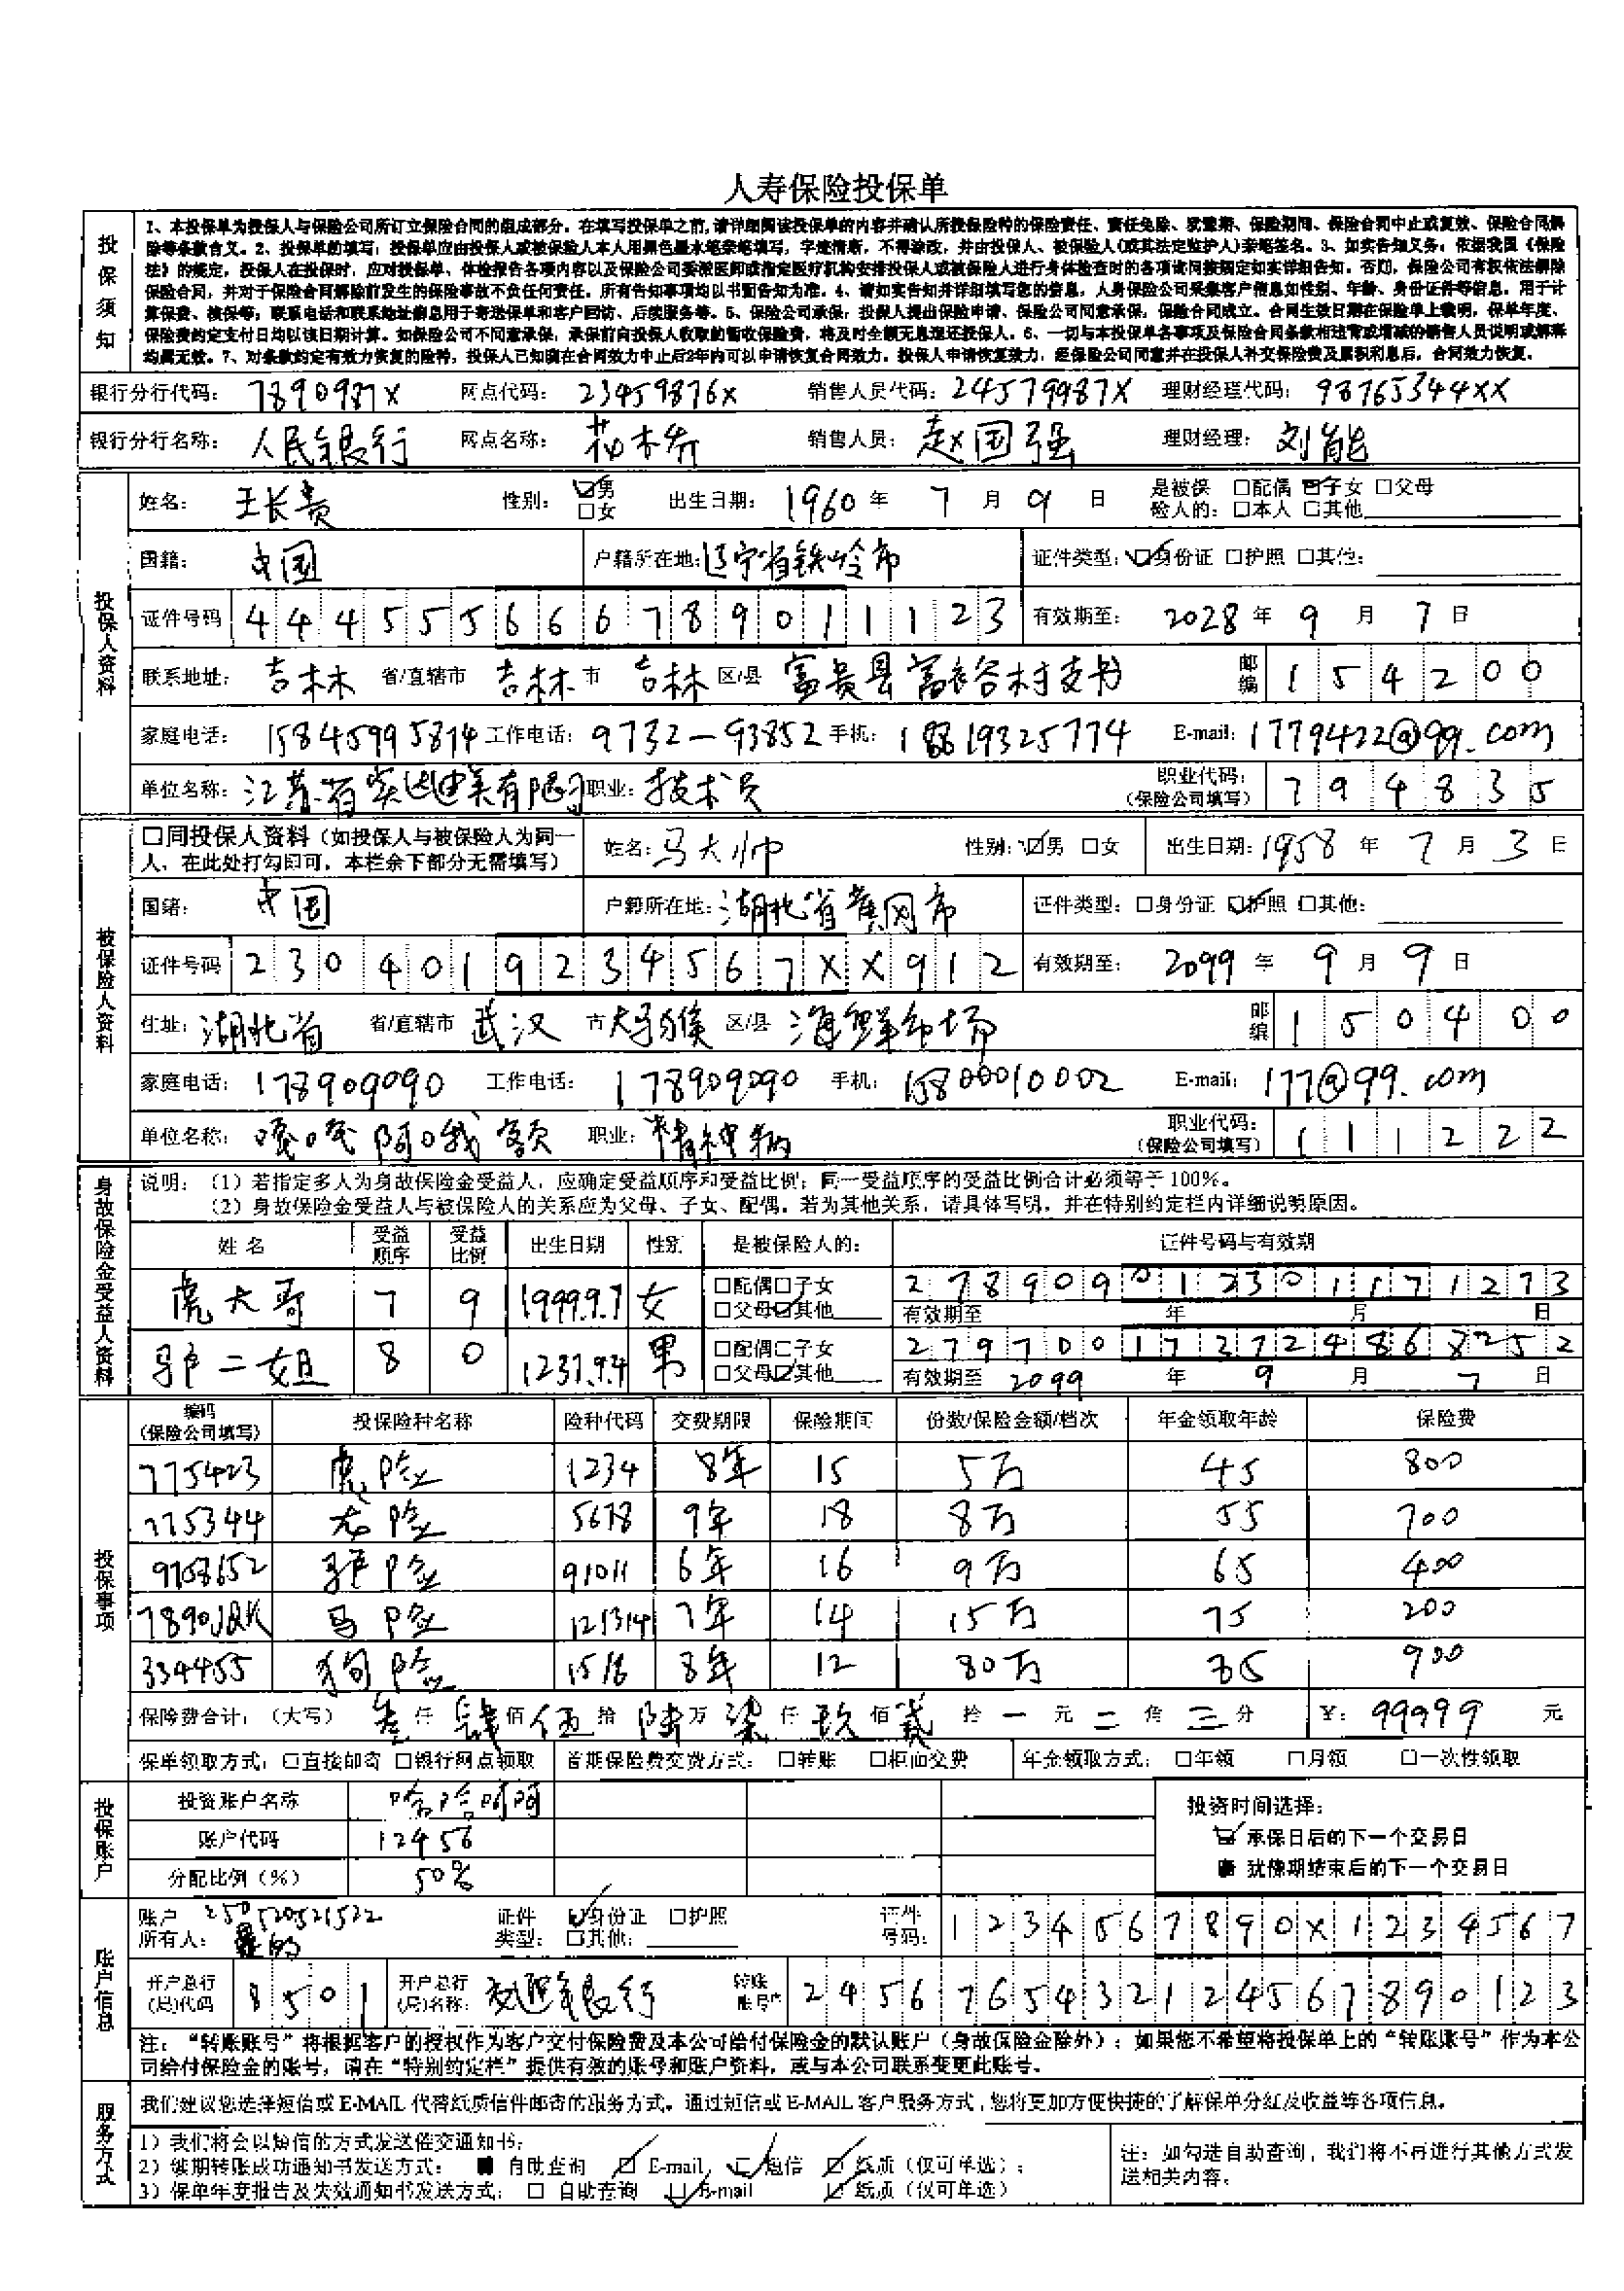 人寿保险投保单
投保须知
1、本投保单为投保人与保险公司所订立保险合同的组成部分。在填写投保单之前,请详细阅读投保单的内容并确认所投保险种的保险责任、责任免除、犹豫期、保险期间、保险合同中止或复效、保险合同解
除等条款含义。2、投保单的填写：投保单应由投保人或被保险人本人用黑色墨水笔亲笔填写，字迹清晰，不得涂改，并由投保人、被保险人(或其法定监护人)亲笔签名。3、如实告知义务：依据我国《保险
法》的规定，投保人在投保时，应对投保单、体检报告各项内容以及保险公司委派医师或指定医疗机构安排投保人或被保险人进行身体检查时的各项询问按规定如实详细告知。否则，保险公司有权依法解除
保险合同，并对于保险合同解除前发生的保险事故不负任何责任。所有告知事项均以书面告知为准。4、请如实告知并详细填写您的信息，人身保险公司采集客户信息如性别、年龄、身份证件等信息，用于计
算保费、核保等；联系电话和联系地址信息用于寄送保单和客户回访、后续服务等。5、保险公司承保：投保人提出保险申请、保险公司同意承保，保险合同成立。合同生效日期在保险单上载明，保单年度、
保险费约定支付日均以该日期计算。如保险公司不同意承保，承保前向投保人收取的暂收保险费，将及时全额无息退还投保人。6、一切与本投保单各事项及保险合同条款相违背或增减的销售人员说明或解释
均属无效。7、对条款约定有效力恢复的险种，投保人已知晓在合同效力中止后2年内可以申请恢复合同效力。投保人申请恢复效力，经保险公司同意并在投保人补交保险费及累积利息后，合同效力恢复。
银行分行代码： 7890987X 网点代码： 23459876X 销售人员代码： 24579987X 理财经理代码： 98765344XX
银行分行名称： 人民银行 网点名称： 花木乔 销售人员： 赵国强 理财经理： 刘能
投保人资料
姓名： 王长贵 性别： ☑男 □女 出生日期： 1960 年 7 月 9 日 是被保险人的： □配偶 ☑子女 □父母 □本人 □其他
国籍： 中国 户籍所在地： 辽宁省铁岭市 证件类型： ☑身份证 □护照 □其他：
证件号码 444555666789011123 有效期至： 2028 年 9 月 7 日
联系地址： 吉林 省/直辖市 吉林 市 吉林 区/县 富贵县富裕村支书 邮编 154200
家庭电话： 15845995814 工作电话： 9732-93852 手机： 18819325774 E-mail： 1779422@qq.com
单位名称： 江苏省 职业： 技术员 职业代码：（保险公司填写） 794835
被保险人资料
□同投保人资料（如投保人与被保险人为同一
人，在此处打勾即可，本栏余下部分无需填写）
姓名： 马大帅 性别： ☑男 □女 出生日期： 1958 年 7 月 3 日
国籍： 中国 户籍所在地： 湖北省黄冈市 证件类型： □身份证 ☑护照 □其他：
证件号码 2304019234567XX912 有效期至： 2099 年 9 月 9 日
住址： 湖北省 省/直辖市 武汉 市 大马猴 区/县 海鲜市场 邮编 150400
家庭电话： 178909090 工作电话： 178909090 手机： 15800010002 E-mail： 177@qq.com
单位名称： 嘎吱阿哦额 职业： 精神病 职业代码：（保险公司填写） 111222
身故保险金受益人资料
说明：（1）若指定多人为身故保险金受益人，应确定受益顺序和受益比例；同一受益顺序的受益比例合计必须等于 100%。
（2）身故保险金受益人与被保险人的关系应为父母、子女、配偶。若为其他关系，请具体写明，并在特别约定栏内详细说明原因。
姓 名 受益顺序 受益比例 出生日期 性别 是被保险人的： 证件号码与有效期
虎大哥 7 9 1999.9.7 女 □配偶□子女 □父母☑其他 278909012301171273
有效期至 年 月 日
驴二姐 8 0 1237.9.4 男 □配偶□子女 □父母☑其他 279700173724868252
有效期至 2099 年 9 月 7 日
投保事项
编码（保险公司填写） 投保险种名称 险种代码 交费期限 保险期间 份数/保险金额/档次 年金领取年龄 保险费
775423 虎险 1234 8年 15 5万 45 800
775344 龙险 5678 9年 18 8万 55 700
9768652 驴险 91011 6年 16 9万 65 400
7890JQK 马险 121314 7年 14 15万 75 200
334455 狗险 1516 8年 12 80万 35 900
保险费合计：（大写） 叁 仟 佰 伍 拾 陆 万 柒 仟 玖 佰 贰 拾 一 元 二 角 三 分 ￥： 99999 元
保单领取方式： □直接邮寄 □银行网点领取 首期保险费交费方式： □转账 □柜面交费 年金领取方式： □年领 □月领 □一次性领取
投保账户
投资账户名称 哈哈呵呵
账户代码 12456
分配比例（%） 50%
投资时间选择：
☑ 承保日后的下一个交易日
■ 犹豫期结束后的下一个交易日
账户信息
账户所有人： 250520521522 证件类型： ☑身份证 □护照 □其他： 证件号码： 1234567890X1234567
开户总行(局)代码 8501 开户总行(局)名称： 交通银行 转账账号 2456765432124567890123
注：“转账账号”将根据客户的授权作为客户交付保险费及本公司给付保险金的默认账户（身故保险金除外）；如果您不希望将投保单上的“转账账号”作为本公
司给付保险金的账号，请在“特别约定栏”提供有效的账号和账户资料，或与本公司联系变更此账号。
服务方式
我们建议您选择短信或 E-MAIL 代替纸质信件邮寄的服务方式。通过短信或 E-MAIL 客户服务方式，您将更加方便快捷的了解保单分红及收益等各项信息。
1）我们将会以短信的方式发送催交通知书；
2）续期转账成功通知书发送方式： ■ 自助查询 ☑ E-mail ☑ 短信 ☑ 纸质（仅可单选）；
3）保单年度报告及失效通知书发送方式： □ 自助查询 ☑ E-mail ☑ 纸质（仅可单选）
注：如勾选自助查询，我们将不再进行其他方式发
送相关内容。